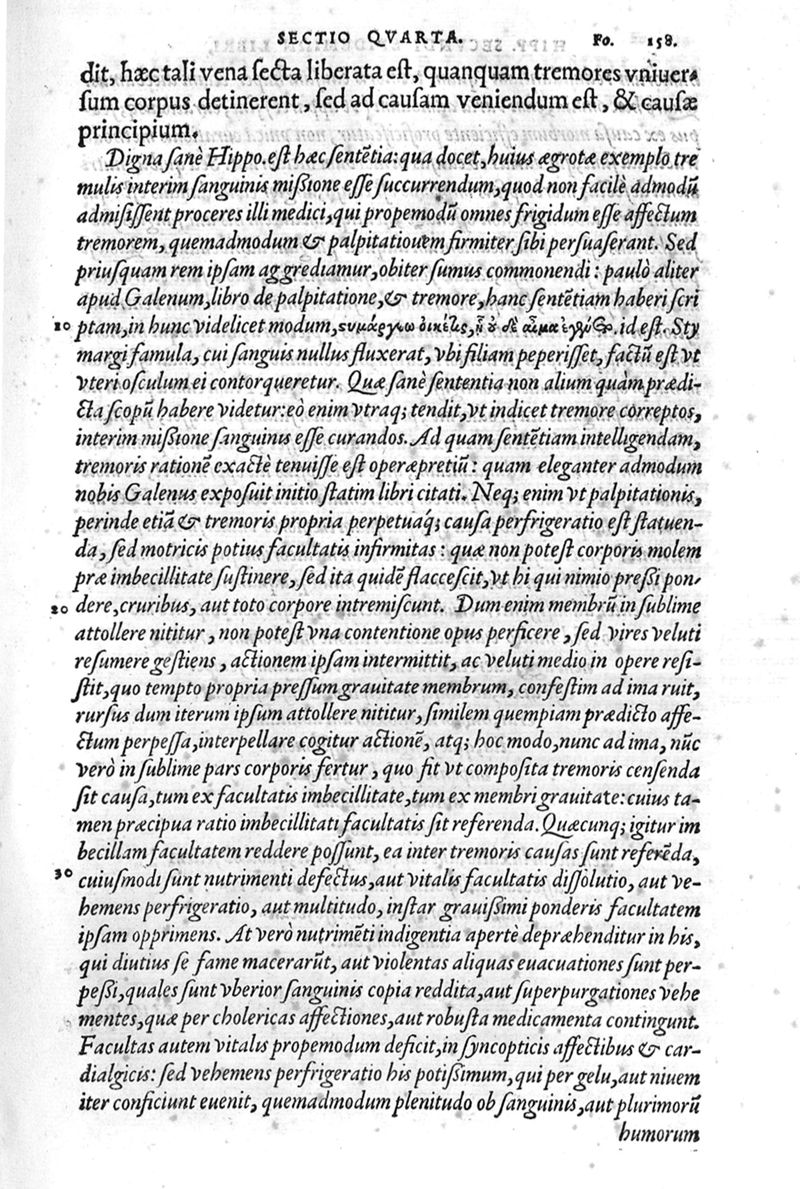 SECTIO QVARTA. Fo. 158.
dit, hæc tali vena ſecta liberata eſt, quanquam tremores vniuer-
ſum corpus detinerent, ſed ad cauſam veniendum eſt, & cauſæ
principium.
Digna ſanè Hippo. eſt hæc ſentẽtia: qua docet, huius ægrotæ exemplo tre
mulis interim ſanguinis miſſione eſſe ſuccurrendum, quod non facilè admodũ
admiſiſſent proceres illi medici, qui propemodũ omnes frigidum eſſe affectum
tremorem, quemadmodum & palpitationem firmiter ſibi perſuaſerant. Sed
priuſquam rem ipſam aggrediamur, obiter ſumus commonendi: paulò aliter
apud Galenum, libro de palpitatione, & tremore, hanc ſentẽtiam haberi ſcri
10 ptam, in hunc videlicet modum, id eſt. Sty
margi famula, cui ſanguis nullus fluxerat, vbi filiam peperiſſet, factũ eſt vt
vteri oſculum ei contorqueretur. Quæ ſanè ſententia non alium quàm prædi-
cta ſcopũ habere videtur: eò enim vtraq; tendit, vt indicet tremore correptos,
interim miſſione ſanguinis eſſe curandos. Ad quam ſentẽtiam intelligendam,
tremoris rationẽ exactè tenuiſſe eſt operæpretiũ: quam eleganter admodum
nobis Galenus expoſuit initio ſtatim libri citati. Neq; enim vt palpitationis,
perinde etiã & tremoris propria perpetuaq́; cauſa perfrigeratio eſt ſtatuen-
da, ſed motricis potius facultatis infirmitas: quæ non poteſt corporis molem
præ imbecillitate ſuſtinere, ſed ita quidẽ flacceſcit, vt hi qui nimio preſſi pon-
20 dere, cruribus, aut toto corpore intremiſcunt. Dum enim membrũ in ſublime
attollere nititur, non poteſt vna contentione opus perficere, ſed vires veluti
reſumere geſtiens, actionem ipſam intermittit, ac veluti medio in opere reſi-
ſtit, quo tempto propria preſſum grauitate membrum, confeſtim ad ima ruit,
rurſus dum iterum ipſum attollere nititur, ſimilem quempiam prædicto affe-
ctum perpeſſa, interpellare cogitur actionẽ, atq; hoc modo, nunc ad ima, nũc
verò in ſublime pars corporis fertur, quo fit vt compoſita tremoris cenſenda
ſit cauſa, tum ex facultatis imbecillitate, tum ex membri grauitate: cuius ta-
men præcipua ratio imbecillitati facultatis ſit referenda. Quæcunq; igitur im
becillam facultatem reddere poſſunt, ea inter tremoris cauſas ſunt referẽda,
30 cuiuſmodi ſunt nutrimenti defectus, aut vitalis facultatis diſſolutio, aut ve-
hemens perfrigeratio, aut multitudo, inſtar grauiſſimi ponderis facultatem
ipſam opprimens. At verò nutrimẽti indigentia apertè depræhenditur in his,
qui diutius ſe fame macerarũt, aut violentas aliquas euacuationes ſunt per-
peſſi, quales ſunt vberior ſanguinis copia reddita, aut ſuperpurgationes vehe
mentes, quæ per cholericas affectiones, aut robuſta medicamenta contingunt.
Facultas autem vitalis propemodum deficit, in ſyncopticis affectibus & car-
dialgicis: ſed vehemens perfrigeratio his potiſſimum, qui per gelu, aut niuem
iter conficiunt euenit, quemadmodum plenitudo ob ſanguinis, aut plurimorũ
humorum